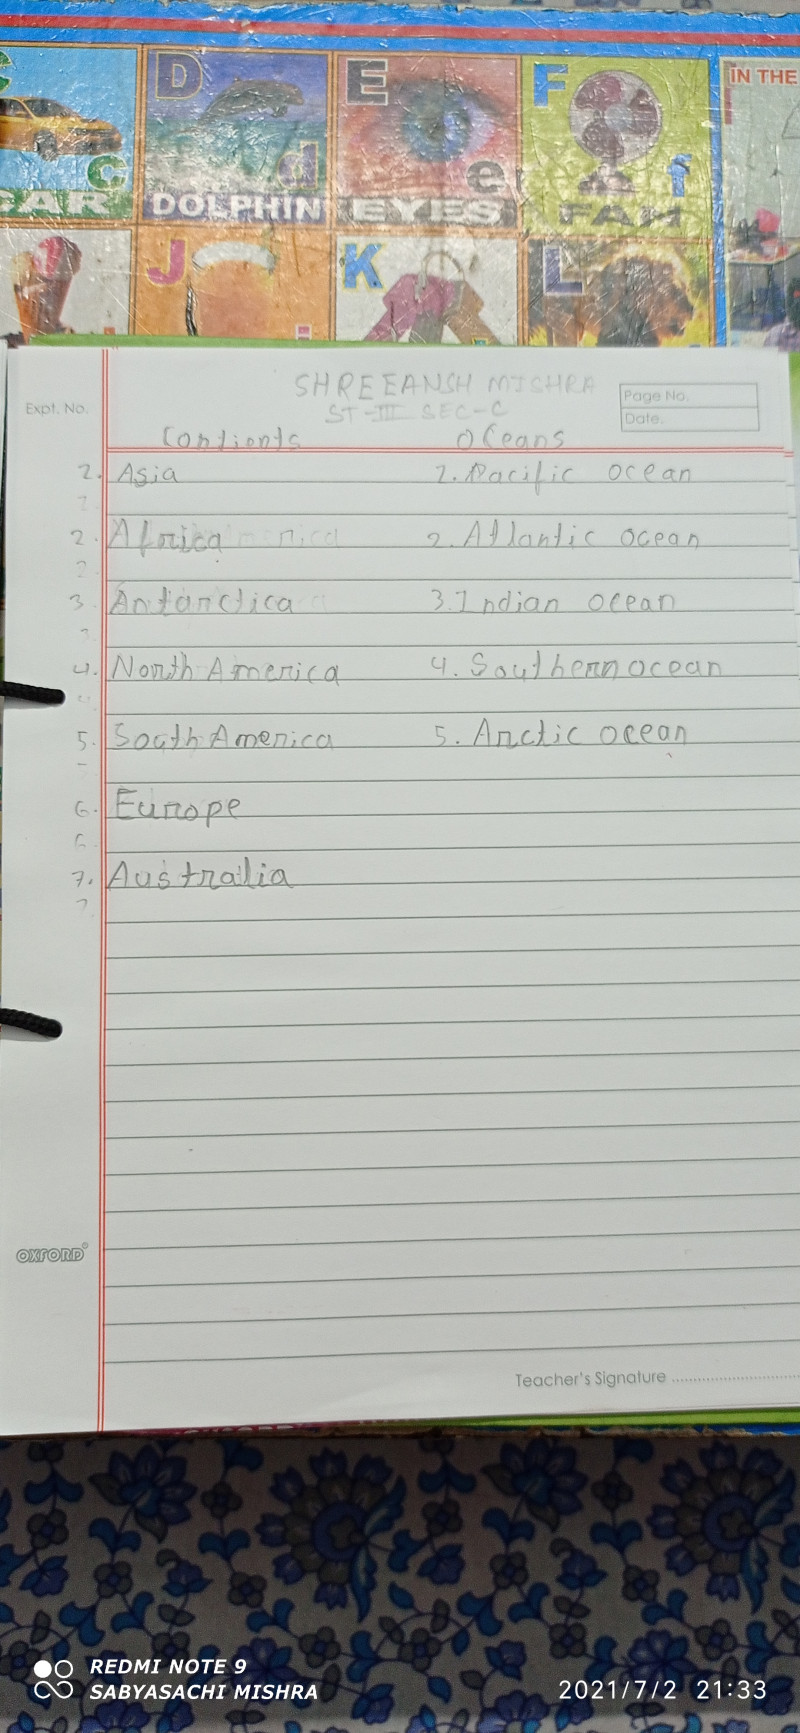 C
D
E
F
IN THE
C
d
e
f
CAR
DOLPHIN
EYES
FAN
J
K
L
SHREEANSH MISHRA
Expt. No.
ST-III SEC-C
Page No.
Date.
Contionts Oceans
1. Asia 1. Pacific ocean
2. Africa 2. Atlantic ocean
3. Antarctica 3. Indian ocean
4. North America 4. Southern ocean
5. South America 5. Arctic ocean
6. Europe
7. Australia
OXFORD
Teacher's Signature
REDMI NOTE 9
SABYASACHI MISHRA
2021/7/2 21:33